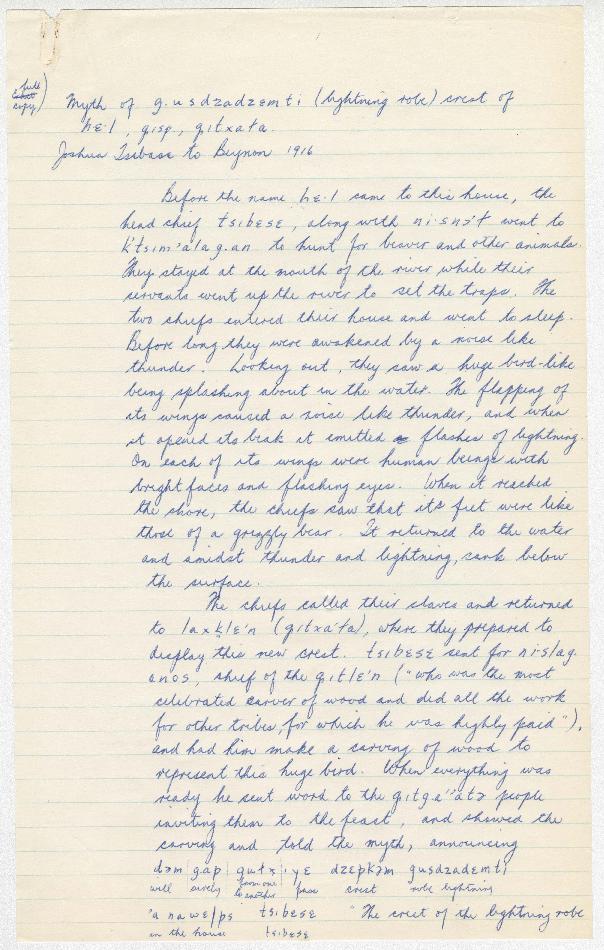 full
copy)
Myth of g.usdzadzemti (lightning robe) crest of
hɛ·l, gisp., gitxaɫa.
Joshua Tsibase to Beynon 1916
Before the name hɛ·l came to this house, the
head chief tsibɛsɛ, along with ni·snɔ't went to
k'tsim'alag.an to hunt for beaver and other animals.
They stayed at the mouth of the river while their
servants went up the river to set the traps. The
two chiefs entered their house and went to sleep.
Before long they were awakened by a noise like
thunder. Looking out, they saw a huge bird-like
being splashing about in the water. The flapping of
its wings caused a noise like thunder, and when
it opened its beak it emitted flashes of lightning.
On each of its wings were human beings with
bright faces and flashing eyes. When it reached
the shore, the chiefs saw that its feet were like
those of a grizzly bear. It returned to the water
and amidst thunder and lightning, sank below
the surface.
The chiefs called their slaves and returned
to laxklɛ'n (gitxa'ɫa), where they prepared to
display this new crest. tsibɛsɛ sent for nislag.
anos, chief of the gitlɛ'n ("who was the most
celebrated carver of wood and did all the work
for other tribes, for which he was highly paid"),
and had him make a carving of wood to
represent this huge bird. When everything was
ready he sent word to the gitga''atə people
inviting them to the feast, and showed the
carving and told the myth, announcing
dəm gap gutx iyɛ dzɛpkəm gusdzadɛmti
will surely from one to another pass crest robe lightning
'a nawɛlps tsibɛsɛ "The crest of the lightning robe
in the house tsibɛsɛ